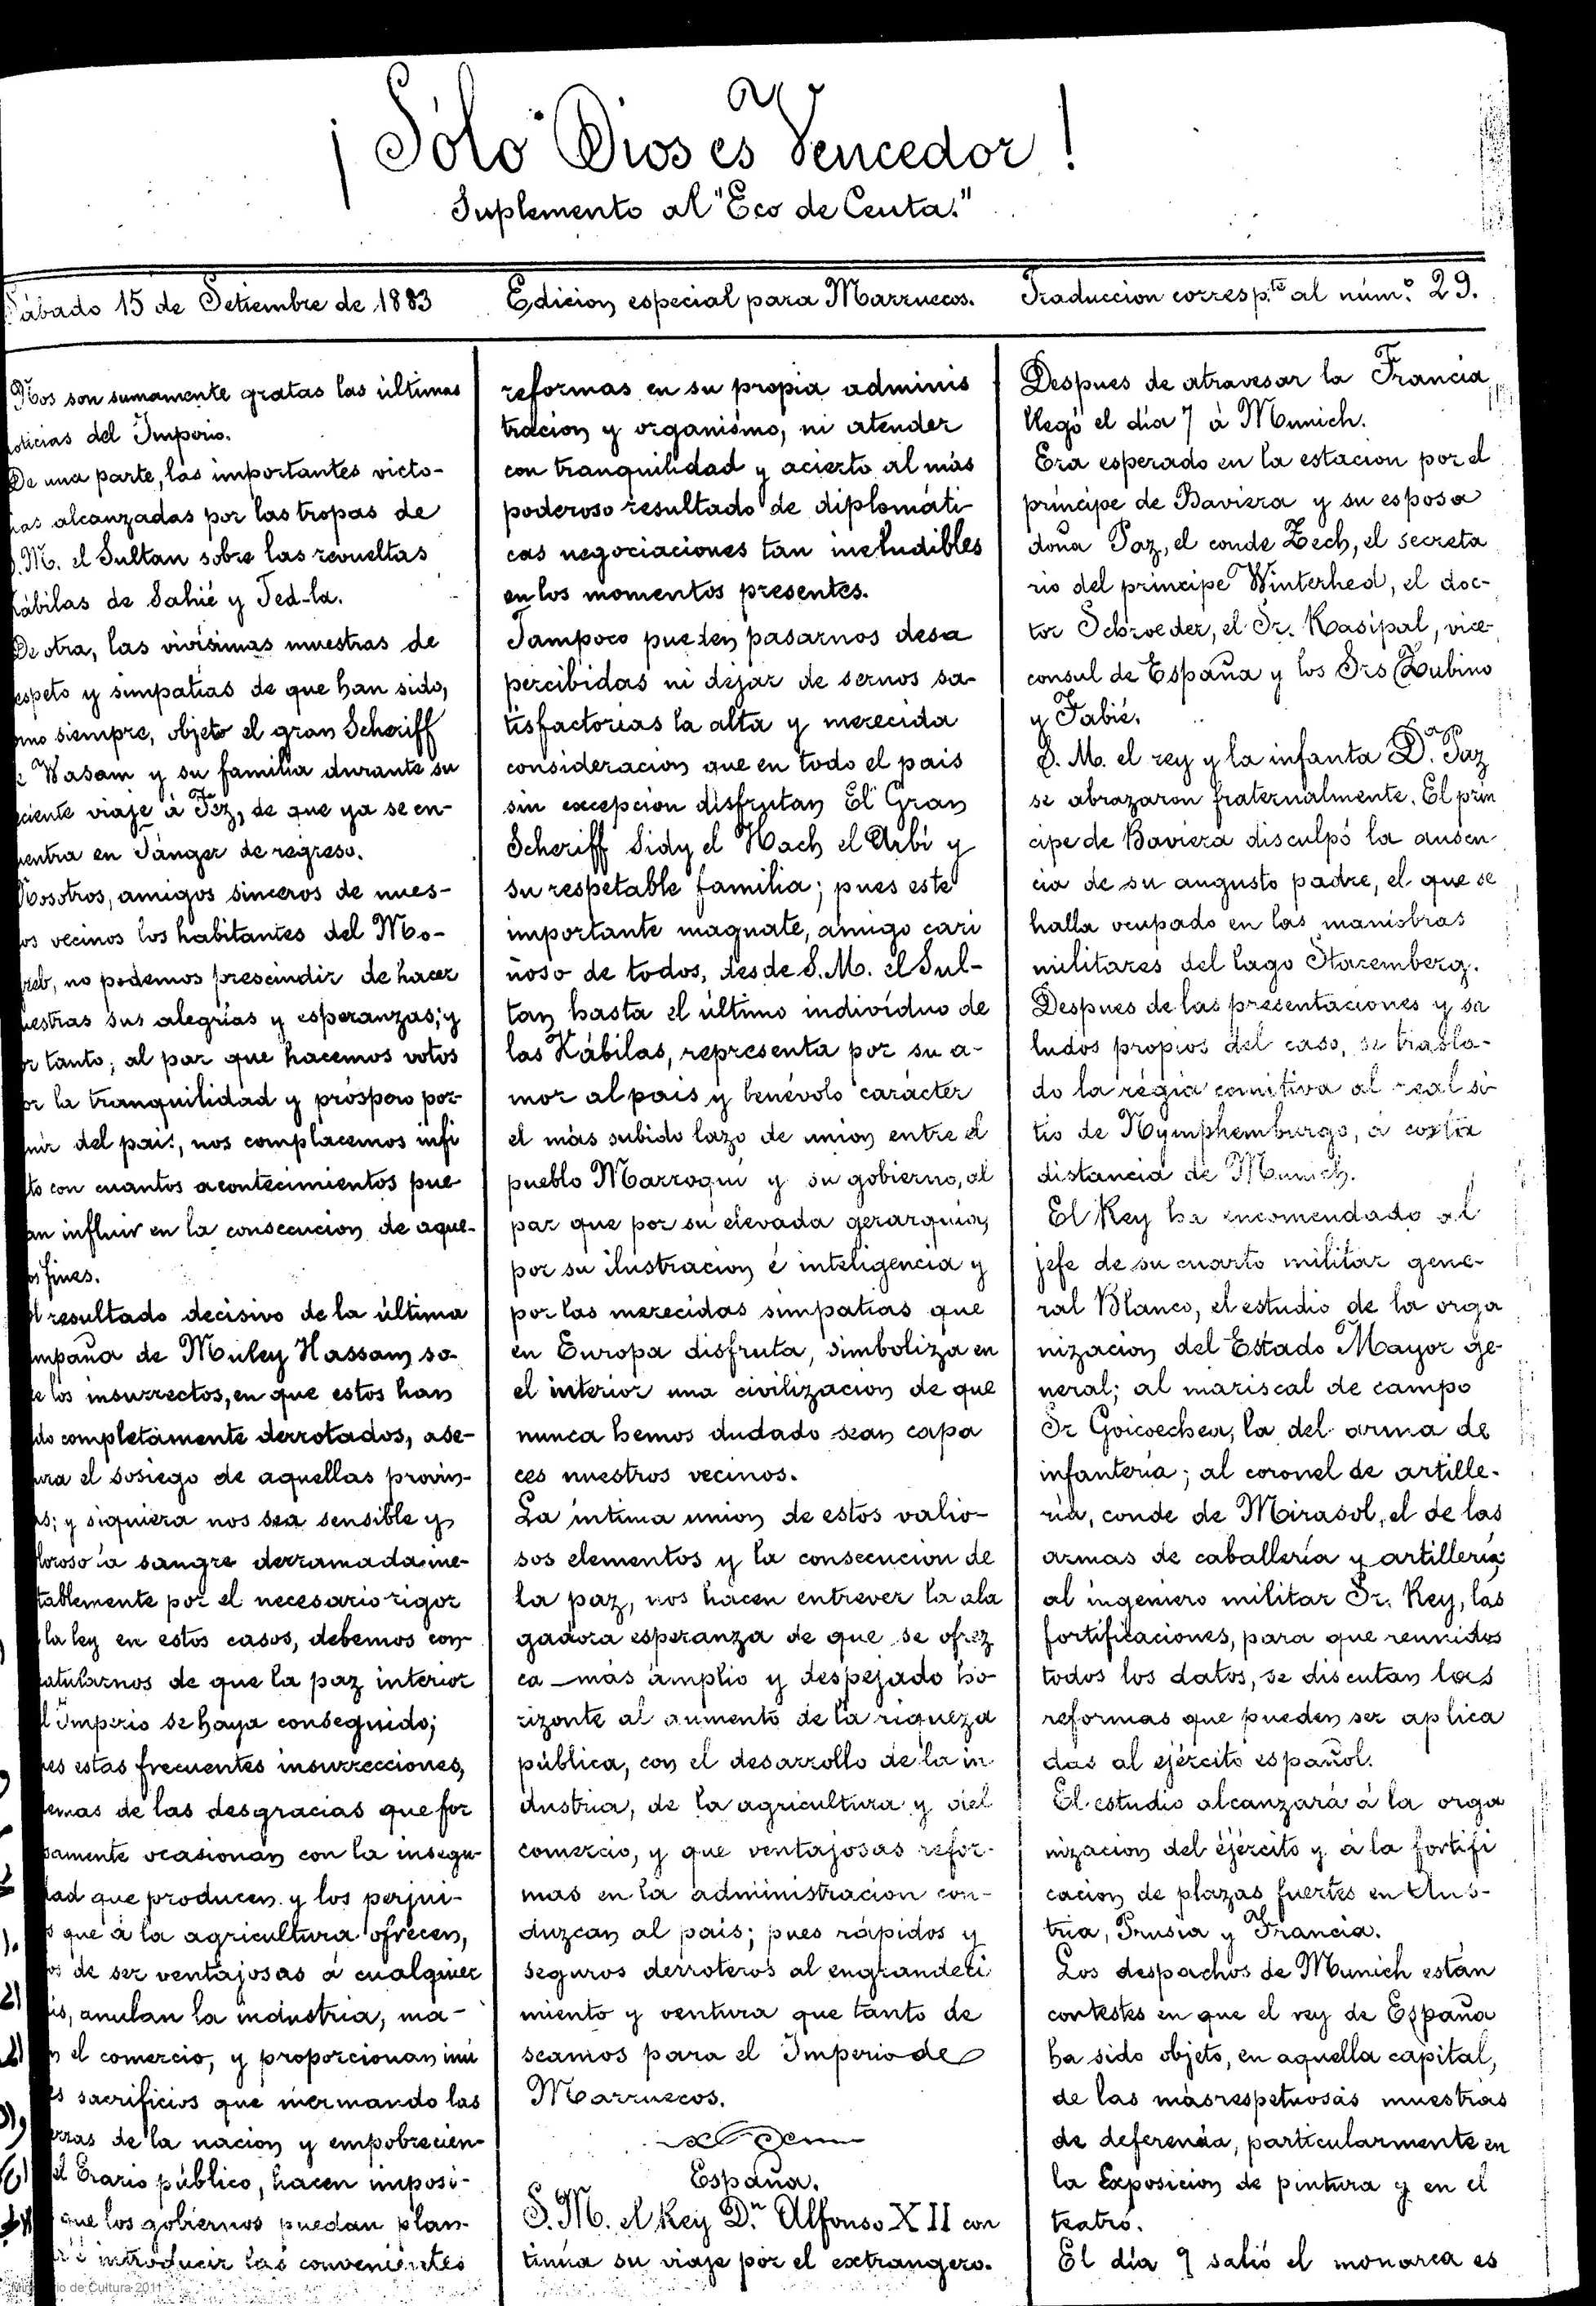 ¡Sólo Dios es Vencedor!
Suplemento al "Eco de Ceuta."
Sábado 15 de Setiembre de 1883
Edicion especial para Marruecos.
Traduccion corresp.te al núm.º 29.
Nos son sumamente gratas las últimas
noticias del Imperio.
De una parte, las importantes victo-
rias alcanzadas por las tropas de
S. M. el Sultan sobre las revueltas
Kábilas de Sahié y Ted-la.
De otra, las vivísimas muestras de
espeto y simpatías de que han sido,
omo siempre, objeto el gran Scheriff
e Wasam y su familia durante su
eciente viaje á Fez, de que ya se en-
uentra en Tánger de regreso.
Nosotros, amigos sinceros de nues-
os vecinos los habitantes del Mo-
greb, no podemos prescindir de hacer
uestras sus alegrías y esperanzas; y
or tanto, al par que hacemos votos
or la tranquilidad y próspero por-
nir del pais, nos complacemos infi
ito con cuantos acontecimientos pue-
an influir en la consecucion de aque-
os fines.
El resultado decisivo de la última
ampaña de Muley Hassam so-
re los insurrectos, en que estos han
ido completamente derrotados, ase-
ura el sosiego de aquellas provin-
as; y siquiera nos sea sensible y
loroso la sangre derramada ine-
tablemente por el necesario rigor
la ley en estos casos, debemos con-
atularnos de que la paz interior
l Imperio se haya conseguido;
ues estas frecuentes insurrecciones,
emas de las desgracias que for
samente ocasionan con la insegu-
dad que producen y los perjui-
s que á la agricultura ofrecen,
os de ser ventajosas á cualquier
is, anulan la industria, ma-
n el comercio, y proporcionan inú
es sacrificios que mermando las
erzas de la nacion y empobrecien-
el Erario público, hacen imposi-
que los gobiernos puedan plan-
r é introducir las convenientes
reformas en su propia adminis
tracion y organismo, ni atender
con tranquilidad y acierto al más
poderoso resultado de diplomáti-
cas negociaciones tan ineludibles
en los momentos presentes.
Tampoco pueden pasarnos desa
percibidas ni dejar de sernos sa-
tisfactorias la alta y merecida
consideracion que en todo el pais
sin excepcion disfrutan El Gran
Scheriff Sidy el Hach el Arbi y
su respetable familia; pues este
importante magnate, amigo cari
ñoso de todos, desde S. M. el Sul-
tan hasta el último individuo de
las Kábilas, representa por su a-
mor al pais y benévolo carácter
el más subido lazo de union entre el
pueblo Marroquí y su gobierno, al
par que por su elevada gerarquía,
por su ilustracion é inteligencia y
por las merecidas simpatías que
en Europa disfruta, simboliza en
el interior una civilizacion de que
nunca hemos dudado sean capa
ces nuestros vecinos.
La íntima union de estos valio-
sos elementos y la consecucion de
la paz, nos hacen entrever la ala
gadora esperanza de que se ofrez
ca más amplio y despejado ho-
rizonte al aumento de la riqueza
pública, con el desarrollo de la in
dustria, de la agricultura y del
comercio, y que ventajosas refor-
mas en la administracion con-
duzcan al pais; pues rápidos y
seguros derroteros al engrandeci
miento y ventura que tanto de
seamos para el Imperio de
Marruecos.
España.
S. M. el Rey D.n Alfonso XII con
tinúa su viaje por el extrangero.
Despues de atravesar la Francia,
llegó el día 7 á Munich.
Era esperado en la estacion por el
príncipe de Baviera y su esposa
doña Paz, el conde Zech, el secreta
rio del príncipe Winterhed, el doc-
tor Schroeder, el Sr. Kasipal, vice-
consul de España y los Srs Zubino
y Fabié.
S. M. el rey y la infanta D.ª Paz
se abrazaron fraternalmente. El prín
cipe de Baviera disculpó la ausen
cia de su augusto padre, el que se
halla ocupado en las maniobras
militares del lago Staremberg.
Despues de las presentaciones y sa
ludos propios del caso, se trasla-
do la régia comitiva al real si
tio de Nymphemburgo, á corta
distancia de Munich.
El Rey ha encomendado al
jefe de su cuarto militar gene-
ral Blanco, el estudio de la orga
nizacion del Estado Mayor ge-
neral; al mariscal de campo
Sr Goicoechea, la del arma de
infantería; al coronel de artille-
ría, conde de Mirasol, el de las
armas de caballería y artillería;
al ingeniero militar Sr. Rey, las
fortificaciones, para que reunidos
todos los datos, se discutan las
reformas que pueden ser aplica
das al ejército español.
El estudio alcanzará á la orga
nizacion del ejército y á la fortifi
cacion de plazas fuertes en Aus-
tria, Prusia y Francia.
Los despachos de Munich están
contestes en que el rey de España
ha sido objeto, en aquella capital,
de las más respetuosas muestras
de deferencia, particularmente en
la Exposicion de pintura y en el
teatro.
El día 9 salió el monarca es
Ministerio de Cultura 2011